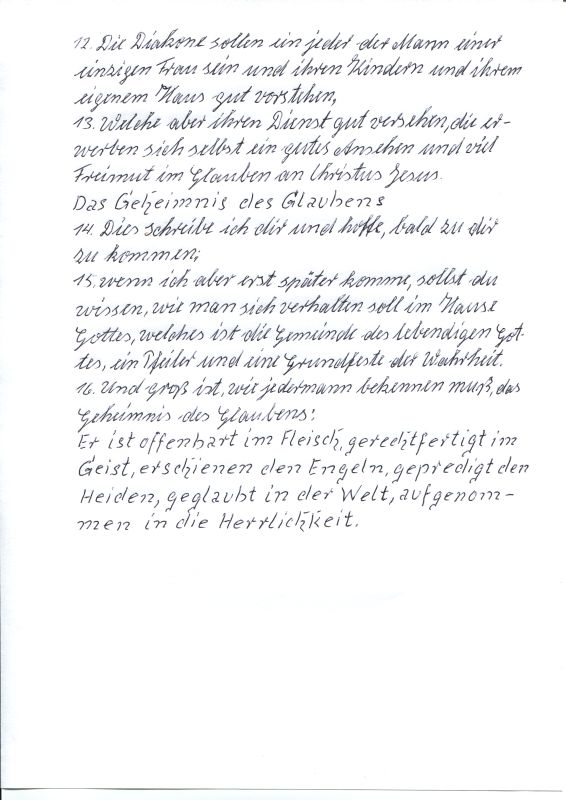 12. Die Diakone sollen ein jeder der Mann einer
einzigen Frau sein und ihren Kindern und ihrem
eigenem Haus gut vorstehen,
13. Welche aber ihren Dienst gut versehen, die er-
werben sich selbst ein gutes Ansehen und viel
Freimut im Glauben an Christus Jesus.
Das Geheimnis des Glaubens
14. Dies schreibe ich dir und hoffe, bald zu dir
zu kommen;
15. wenn ich aber erst später komme, sollst du
wissen, wie man sich verhalten soll im Hause
Gottes, welches ist die Gemeinde des lebendigen Got-
tes, ein Pfeiler und eine Grundfeste der Wahrheit.
16. Und groß ist, wie jedermann bekennen muß, das
Geheimnis des Glaubens:
Er ist offenbart im Fleisch, gerechtfertigt im
Geist, erschienen den Engeln, gepredigt den
Heiden, geglaubt in der Welt, aufgenom-
men in die Herrlichkeit.